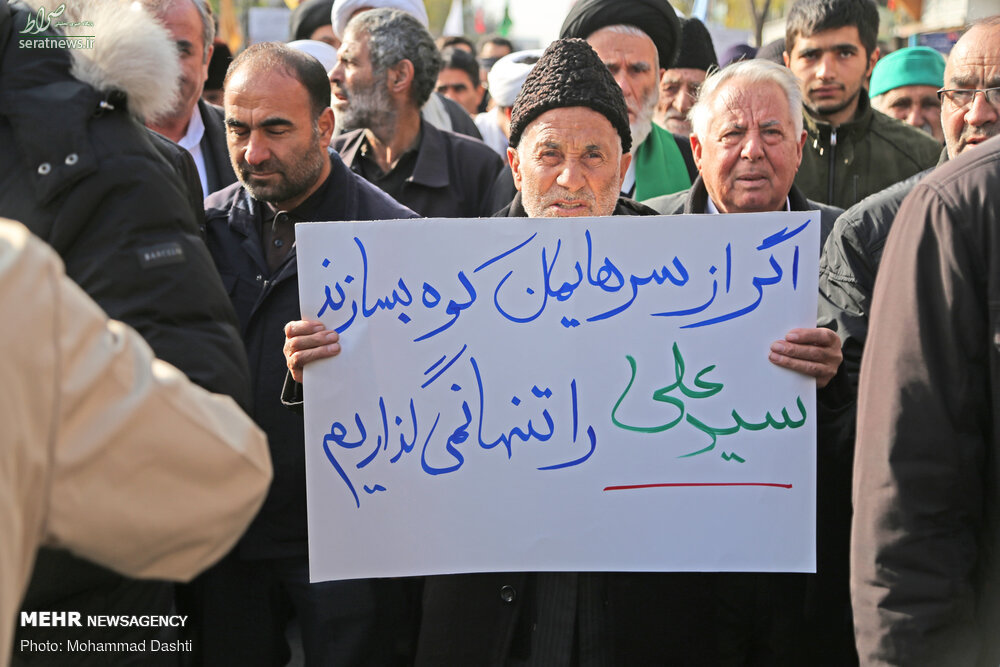 صراط
seratnews.ir
اگر از سرهایمان کوه بسازند
سید علی را تنها نمی گذاریم
MEHR NEWSAGENCY
Photo: Mohammad Dashti